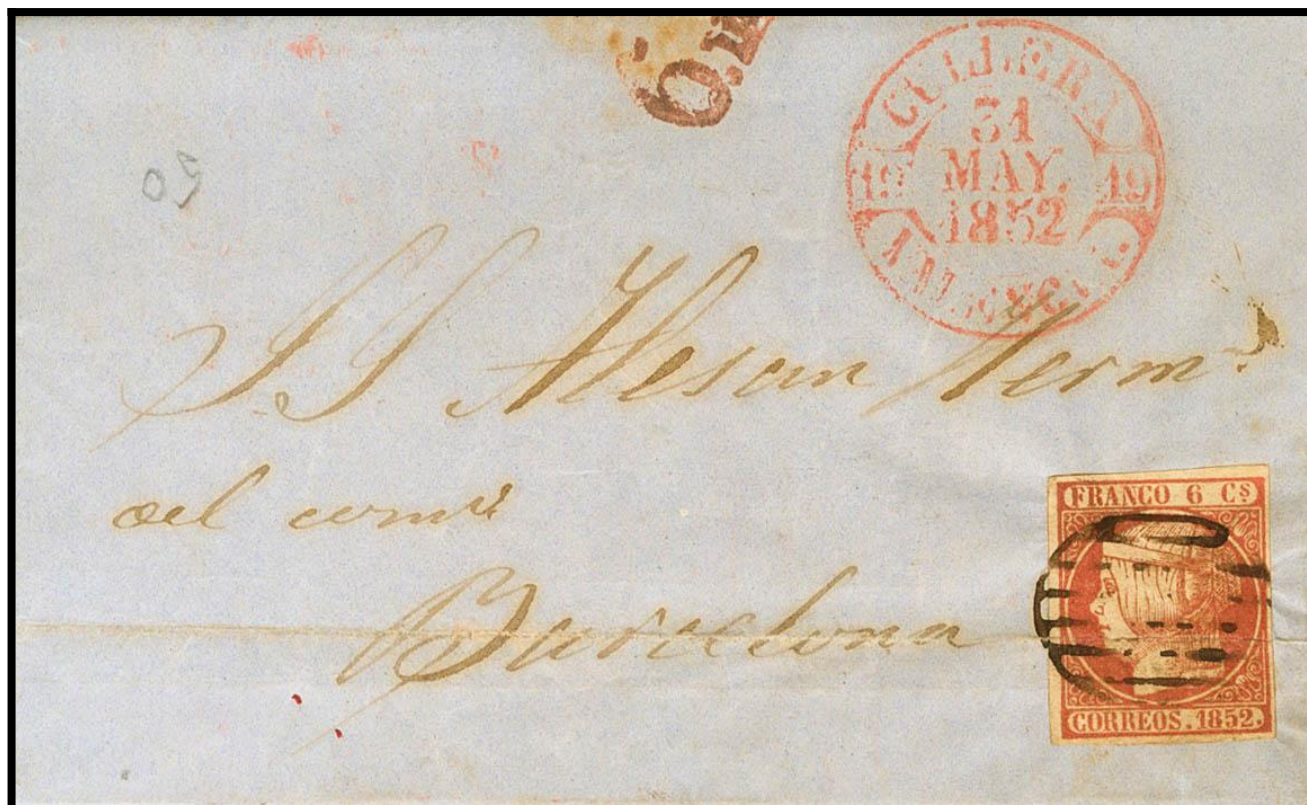 CULLERA
31
MAY.
1852
19 19
VALENCIA.
S.S. Alesan Herm.s
del com.o
Barcelona
FRANCO 6 Cs
CORREOS. 1852.